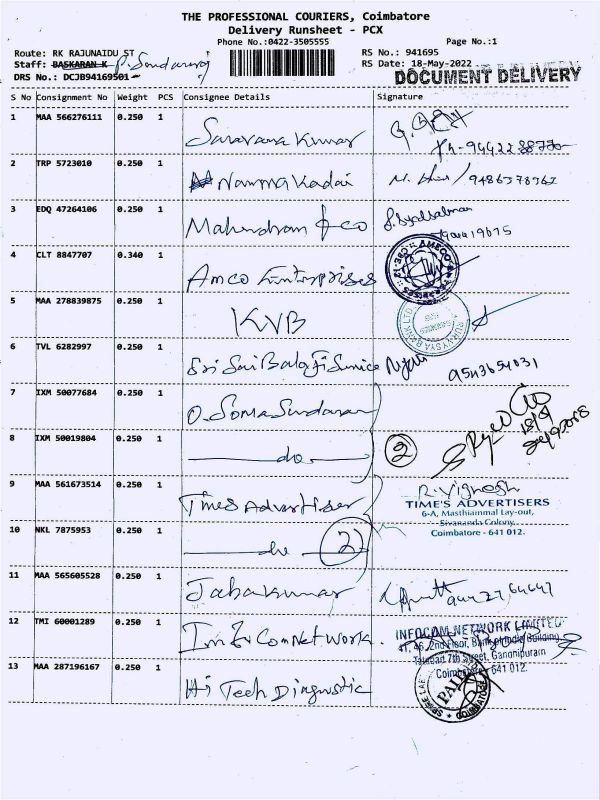 THE PROFESSIONAL COURIERS, Coimbatore
Delivery Runsheet - PCX
Phone No.:0422-3505555
Page No.:1
Route: RK RAJUNAIDU ST
RS No.: 941695
Staff: BASKARAN K P. Sundarraj
RS Date: 18-May-2022
DRS No.: DCJB94169501
DOCUMENT DELIVERY
S No Consignment No Weight PCS Consignee Details Signature
1 MAA 566276111 0.250 1 Saravana Kumar
2 TRP 5723010 0.250 1 Namma Kadai
3 EDQ 47264106 0.250 1 Mahendram & co
4 CLT 8847707 0.340 1 Amco Enterprises
5 MAA 278839875 0.250 1 KVB
6 TVL 6282997 0.250 1 Sri Sai Balaji Service
7 IXM 50077684 0.250 1 O. Somasundaran
8 IXM 50019804 0.250 1 do 2
9 MAA 561673514 0.250 1 Times Advertiser R. Vignesh
TIME'S ADVERTISERS
6-A, Masthiammal Lay-out,
Sivananda Colony,
Coimbatore - 641 012.
10 NKL 7875953 0.250 1 do 2
11 MAA 565605528 0.250 1 Jabakumar
12 TMI 60001289 0.250 1 Infocom Network
INFOCOM NETWORK LIMITED
41, 46, 2nd Floor, Bank of India Building
Tatabad 7th Street, Gandhipuram
Coimbatore - 641 012.
13 MAA 287196167 0.250 1 Hi Tech Diagnostic
PAID